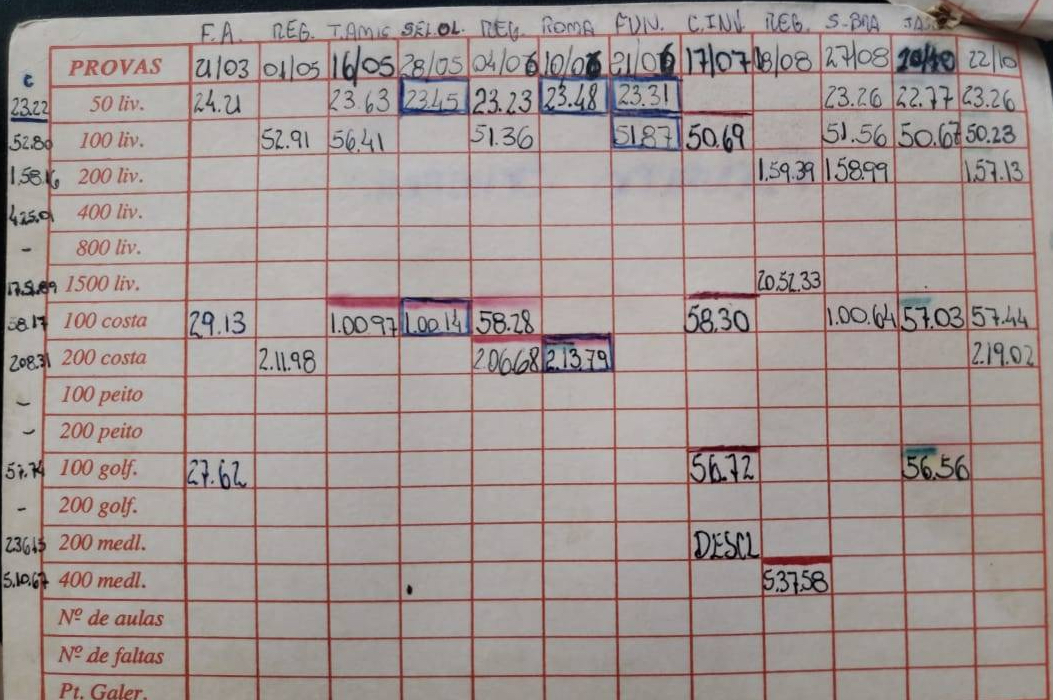 F.A. REG. T.AMIC SEL.OL. REG. ROMA FUN. C.INV. REG. S.BRA
PROVAS 21/03 01/05 16/05 28/05 04/06 10/06 21/06 17/07 18/08 27/08 22/10
C
23.22 50 liv. 24.21 23.63 23.45 23.23 23.48 23.31 23.26 22.77 23.26
52.80 100 liv. 52.91 56.41 51.36 51.87 50.69 51.56 50.67 50.23
1.58.16 200 liv. 1.59.39 1.58.99 1.57.13
4.25.01 400 liv.
- 800 liv.
17.51.89 1500 liv. 20.52.33
58.17 100 costa 29.13 1.00.97 1.00.14 58.28 58.30 1.00.64 57.03 57.44
2.08.31 200 costa 2.11.98 2.06.68 2.13.79 2.19.02
- 100 peito
- 200 peito
57.74 100 golf. 27.62 56.72 56.56
- 200 golf.
2.36.15 200 medl. DESCL
5.10.67 400 medl. 5.37.58
Nº de aulas
Nº de faltas
Pt. Galer.